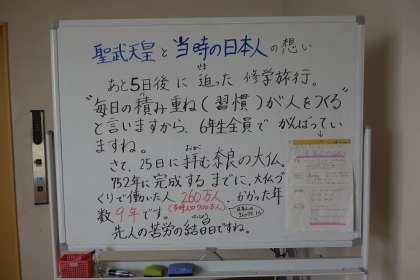 聖武天皇と当時の日本人の想い
あと5日後に迫った修学旅行。
"毎日の積み重ね(習慣)が人をつくる"
と言いますから、6年生全員でがんばってい
ますね。
さて、25日に拝む奈良の大仏。
752年に完成するまでに、大仏づ
くりで働いた人260万人、かかった年
数9年です。
先人の苦労の結晶ですね。